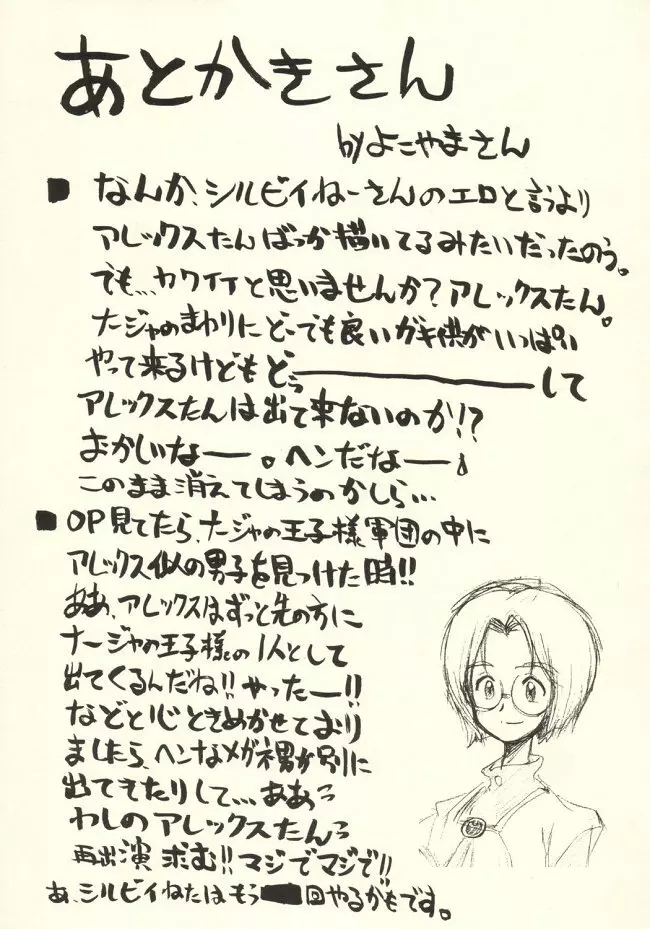 あとかきさん
byよこやまさん
■ なんか、シルビィねーさんのエロと言うより
アレックスたんばっか描いてるみたいだったのう。
でも…カワイイと思いませんか?アレックスたん。
ナージャのまわりにどーでも良いガキ供がいっぱい
やって来るけどもどぅーーーーーーして
アレックスたんは出て来ないのか!?
おかしいなー。ヘンだなー。
このまま消えてしまうのかしら…
■ OP見てたら、ナージャの王子様軍団の中に
アレックス似の男子を見つけた時!!
ああ、アレックスはずっと先の方に
ナージャの王子様の1人として
出てくるんだね!!やったー!!
などと心ときめかせており
ましたら、ヘンなメガネ男が別に
出てきたりして…ああっ
わしのアレックスたんっ
再出演求む!!マジでマジで!!
あ、シルビィねたはもう回やるかもです。